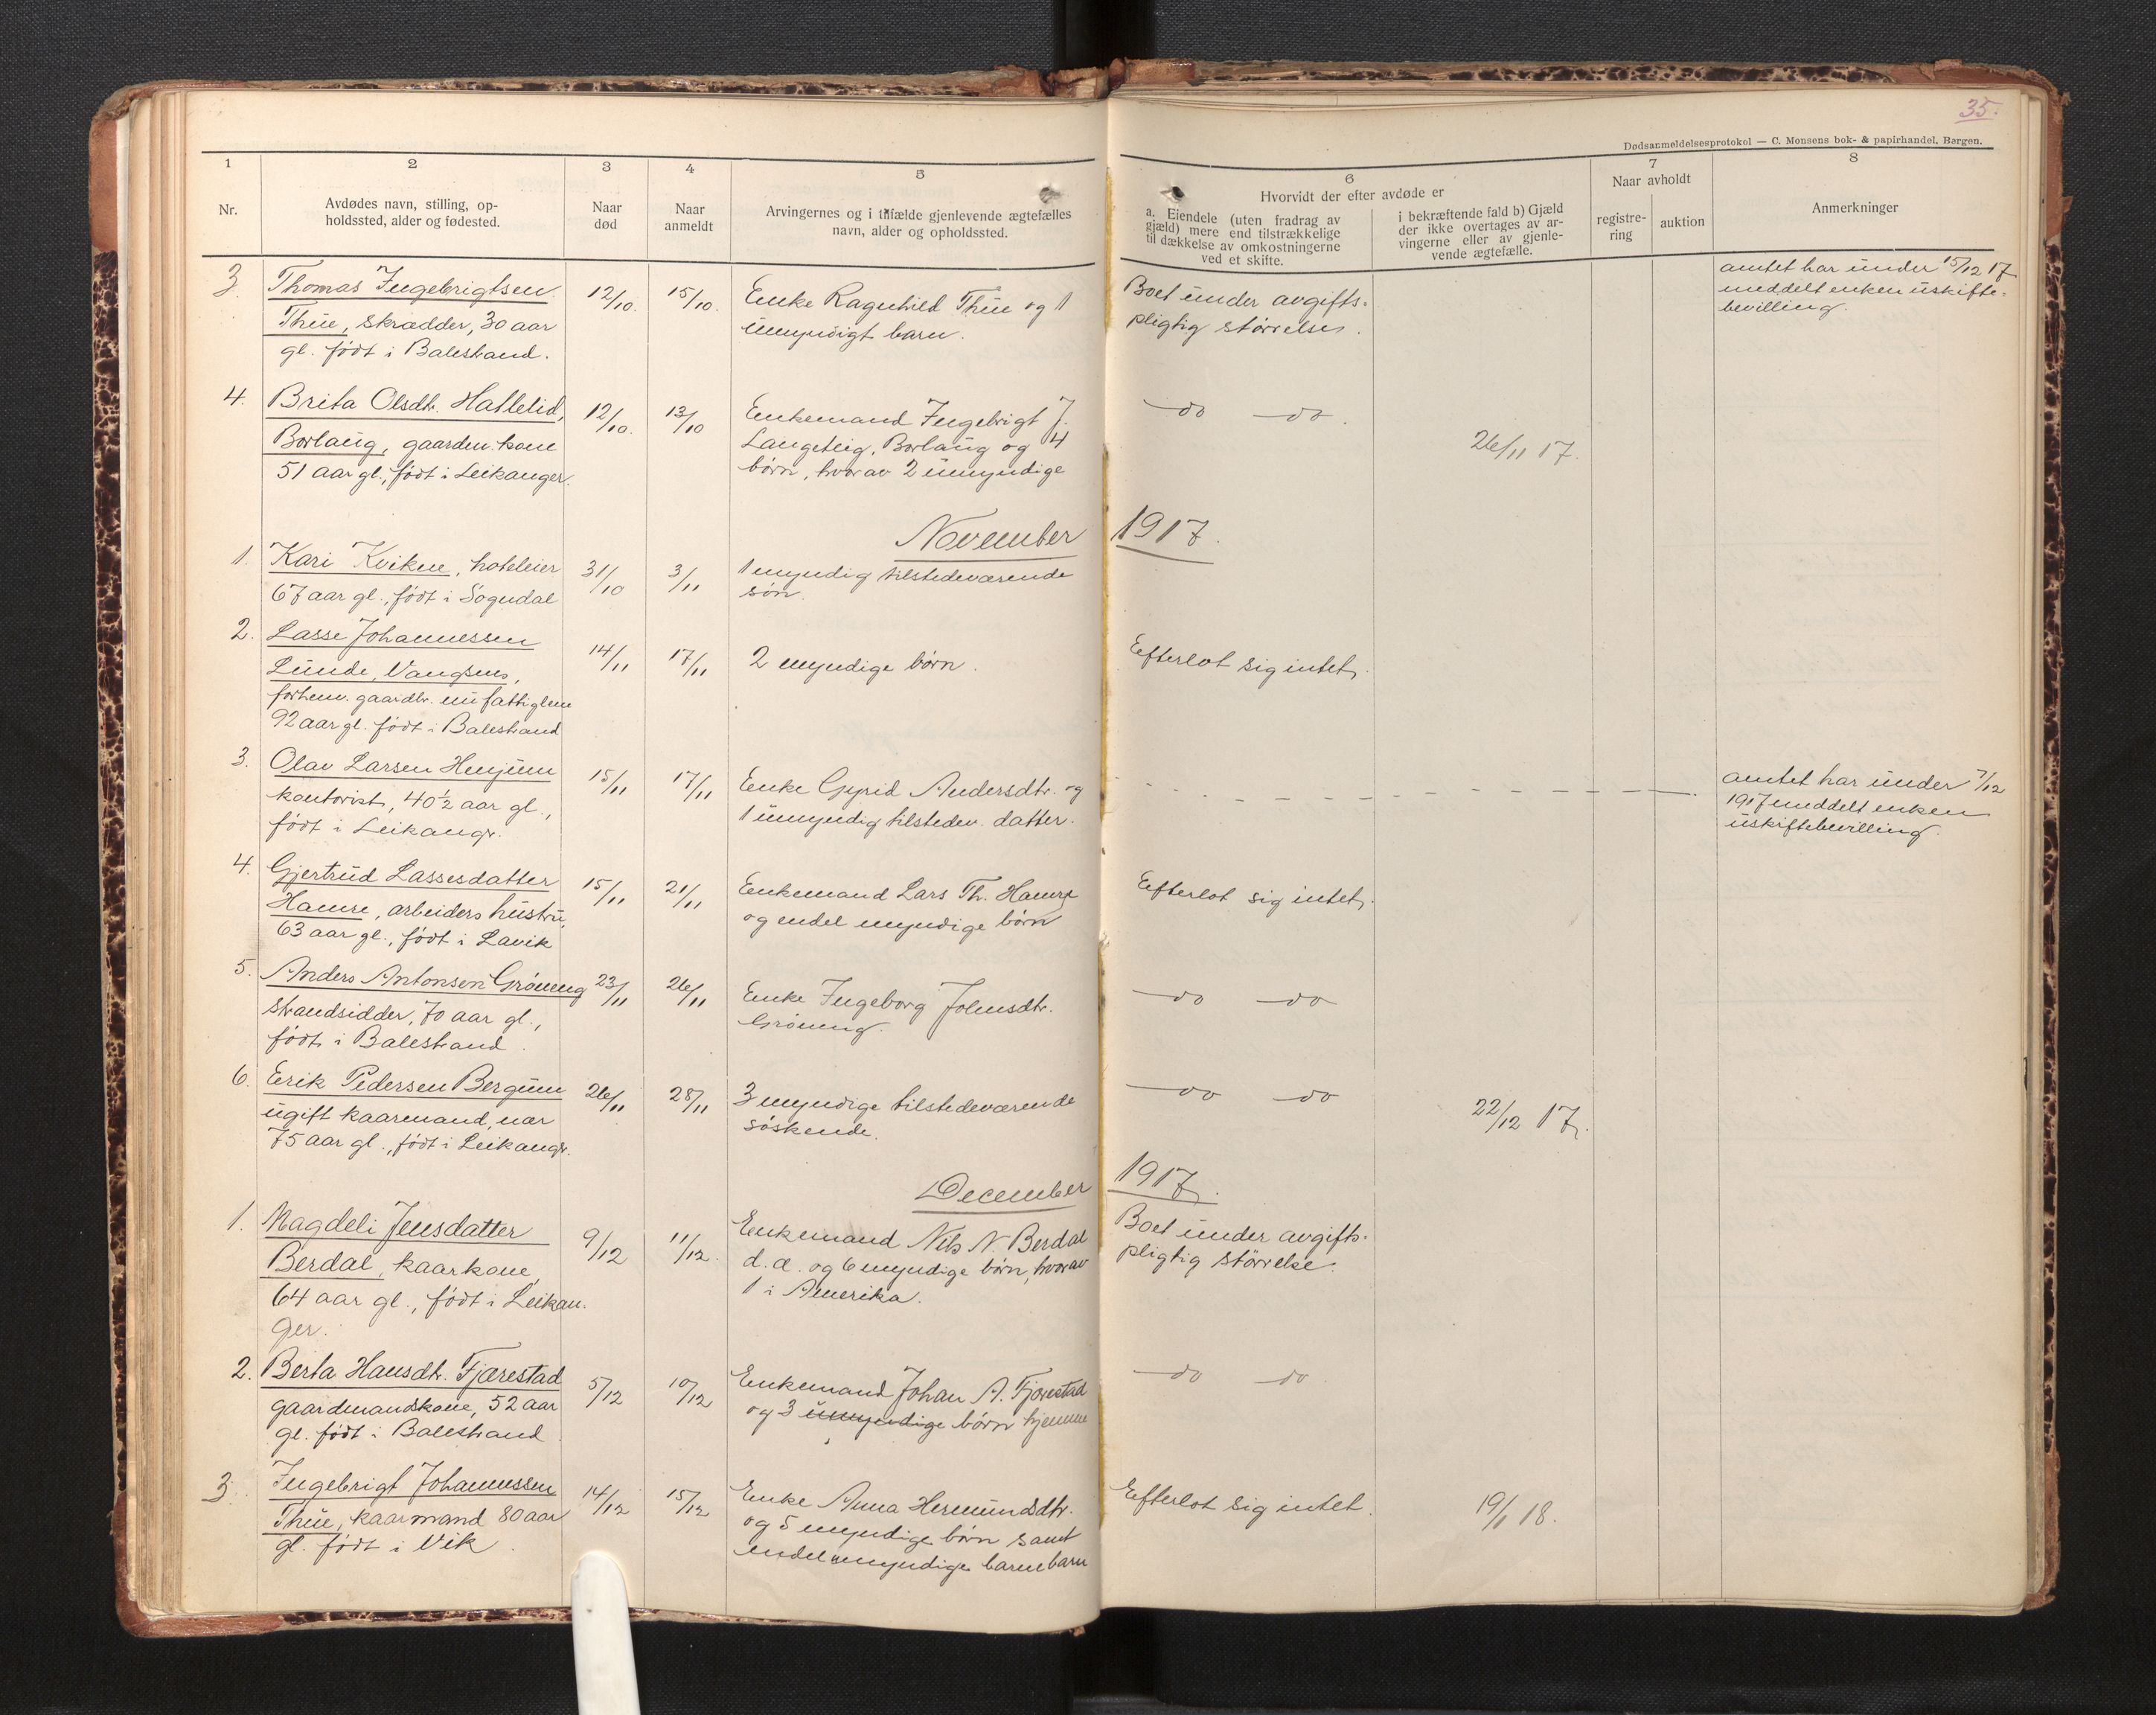 35.
Dødsanmeldelsesprotokol — C. Monsens bok- & papirhandel, Bergen.
1
2
3
4
5
6
7
8
Nr.
Avdødes navn, stilling, op-
holdssted, alder og fødested.
Naar
død
Naar
anmeldt
Arvingernes og i tilfælde gjenlevende ægtefælles
navn, alder og opholdssted.
Hvorvidt der efter avdøde er
a. Eiendele (uten fradrag av
gjæld) mere end tilstrækkelige
til dækkelse av omkostningerne
ved et skifte.
i bekræftende fald b) Gjæld
der ikke overtages av ar-
vingerne eller av gjenle-
vende ægtefælle.
Naar avholdt
registre-
ring
auktion
Anmerkninger
3
Thomas Ingebrigtsen
Thue, skrædder, 30 aar
gl. født i Balestrand.
12/10.
15/10.
Enke Ragnhild Thue og 1
umyndigt barn.
Boet under avgifts-
pligtig størrelse.
amtet har under 15/12 17
meddelt enken uskifte-
bevilling.
4.
Brita Olsdtr. Hallelid,
Borlaug, gaardm. kone
51 aar gl., født i Leikanger.
12/10.
13/10
Enkemand Ingebrigt J.
Langeteig, Borlaug og 4
børn, hvorav 2 umyndige
do do.
26/11 17.
November 1917.
1.
Kari Kvikne, hoteleier
67 aar gl., født i Sogndal
31/10
3/11
1 myndig tilstedeværende
søn.
2.
Lasse Johannessen
Lunde, Vangsnes,
forhenv. gaardbr. nu fattiglem
92 aar gl. født i Balestrand
14/11
17/11
2 myndige børn.
Efterlot sig intet.
3.
Olav Larsen Henjum
kontorist, 40½ aar gl.,
født i Leikangr.
15/11
17/11
Enke Gyrid Andersdtr. og
1 umyndig tilstedev. datter.
amtet har under 7/12
1917 meddelt enken
uskiftebevilling.
4.
Gjertrud Lassesdatter
Hamre, arbeiders hustru,
63 aar gl., født i Lavik
15/11
21/11
Enkemand Lars Th. Hamre
og endel myndige børn
Efterlot sig intet.
5.
Anders Antonsen Grøning
strandsidder, 70 aar gl.,
født i Balestrand.
23/11
26/11
Enke Ingeborg Johnsdtr.
Grøning.
do do
6.
Erik Pedersen Bergum
ugift kaarmand, nær
75 aar gl., født i Leikangr.
26/11
28/11
3 myndige tilstedeværende
søskende.
do do
22/12 17.
December 1917.
1.
Magdeli Jensdatter
Berdal, kaarkone,
64 aar gl., født i Leikan-
ger.
9/12
11/12.
Enkemand Nils N. Berdal
d. æ. og 6 myndige børn, hvorav
1 i Amerika.
Boet under avgifts-
pligtig størrelse.
2.
Berta Hansdtr. Fjærestad
gaardmandskone, 52 aar
gl. født i Balestrand
5/12
10/12
Enkemand Johan A. Fjærestad
og 3 umyndige børn hjemme
do do
3.
Ingebrigt Johannessen
Thue, kaarmand 80 aar
gl. født i Vik.
14/12
15/12
Enke Anna Hermundsdtr.
og 5 myndige børn samt
endel umyndige barnebarn
Efterlot sig intet.
19/1 18.